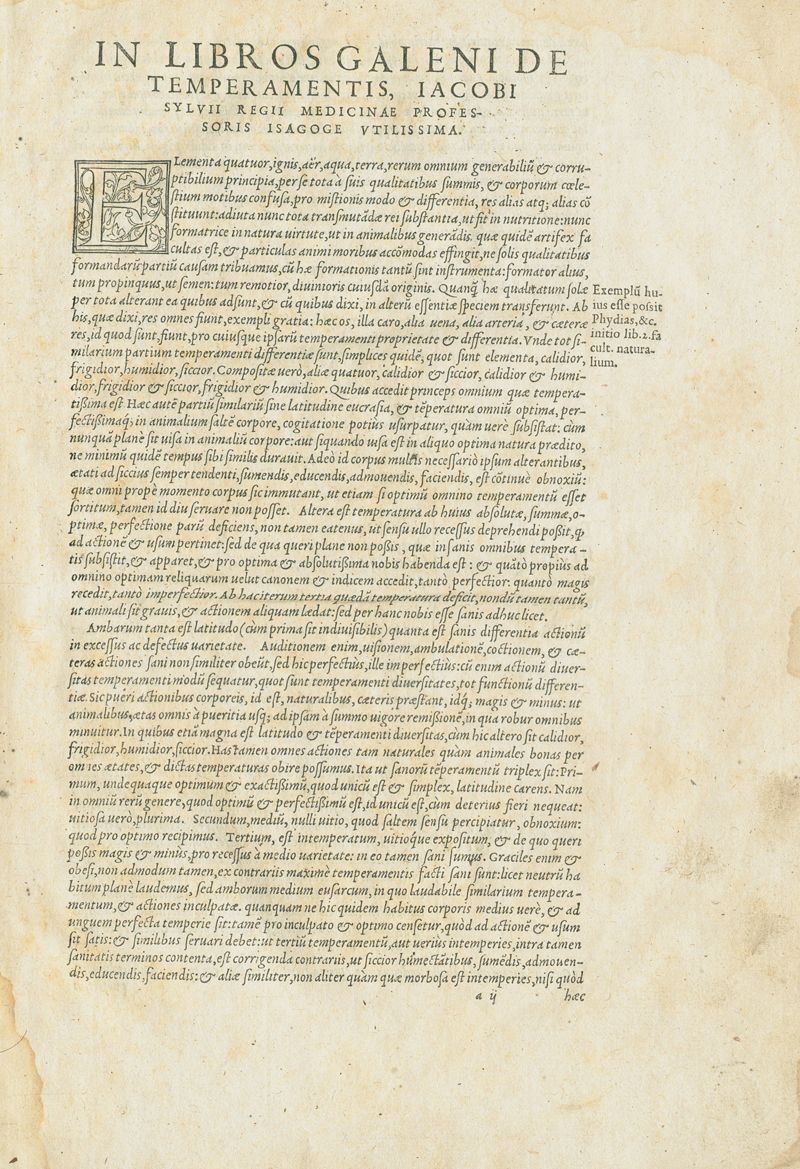 IN LIBROS GALENI DE
TEMPERAMENTIS, IACOBI
SYLVII REGII MEDICINAE PROFES-
SORIS ISAGOGE VTILISSIMA.
ELementa quatuor, ignis, aër, aqua, terra, rerum omnium generabiliũ & corru-
ptibilium principia, per se tota à suis qualitatibus summis, & corporum cœle-
stium motibus confusa, pro mistionis modo & differentia, res alias atq; alias cõ
stituunt: adiuta nunc tota transmutãdæ rei substantia, ut fit in nutritione: nunc
formatrice in natura uirtute, ut in animalibus generãdis. quæ quidẽ artifex fa
cultas est, & particulas animi moribus accõmodas effingit, ne solis qualitatibus
formandarũ partiũ causam tribuamus, cũ hæ formationis tantũ sint instrumenta: formator alius,
tum propinquus, ut semen: tum remotior, diuinioris cuiusdã originis. Quanq̃ hæ qualitatum solæ
per tota alterant ea quibus adsunt, & cũ quibus dixi, in alterũ essentiæ speciem transferunt. Ab
his, quæ dixi, res omnes fiunt, exempli gratia: hæc os, illa caro, alia uena, alia arteria, & cæteræ
res, id quod sunt, fiunt, pro cuiusque ipsarũ temperamenti proprietate & differentia. Vnde tot si-
milarium partium temperamenti differentiæ sunt, simplices quidẽ, quot sunt elementa, calidior,
frigidior, humidior, siccior. Compositæ uerò, aliæ quatuor, calidior & siccior, calidior & humi-
dior, frigidior & siccior, frigidior & humidior. Quibus accedit princeps omnium quæ tempera-
tißima est Hæc autẽ partiũ similariũ sine latitudine eucrasia, & tẽperatura omniũ optima, per-
fectißimaq́; in animalium saltẽ corpore, cogitatione potius usurpatur, quàm uerè subsistat: cùm
nunquã planè sit uisa in animaliũ corpore: aut siquando uisa est in aliquo optima natura prædito,
ne minimũ quidẽ tempus sibi similis durauit. Adeò id corpus multis necessariò ipsum alterantibus,
ætati ad siccius semper tendenti, sumendis, educendis, admouendis, faciendis, est cõtinuè obnoxiũ:
quæ omni propè momento corpus sic immutant, ut etiam si optimũ omnino temperamentũ esset
sortitum, tamen id diu seruare non posset. Altera est temperatura ab huius absolutæ, summæ, o-
ptimæ, perfectione parũ deficiens, non tamen eatenus, ut sensu ullo recessus deprehendi poßit, q̃
ad actionẽ & usum pertinet: sed de qua queri plane non poßis, quæ in sanis omnibus tempera-
tis subsistit, & apparet, & pro optima & absolutißima nobis habenda est: & quãtò propius ad
omnino optimam reliquarum uelut canonem & indicem accedit, tantò perfectior: quantò magis
recedit, tantò imperfectior. Ab hac iterum tertia quædã temperatura deficit, nondũ tamen tantũ,
ut animali sit grauis, & actionem aliquam lædat: sed per hanc nobis esse sanis adhuc licet.
Ambarum tanta est latitudo (cùm prima sit indiuisibilis) quanta est sanis differentia actionũ
in excessus ac defectus uarietate. Auditionem enim, uisionem, ambulationẽ, coctionem, & cæ-
teras actiones sani non similiter obeũt, sed hic perfectiùs, ille imperfectiùs: cũ enim actionũ diuer-
sitas temperamenti modũ sequatur, quot sunt temperamenti diuersitates, tot functionũ differen-
tiæ. Sic pueri actionibus corporeis, id est, naturalibus, cæteris præstant, idq́; magis & minus: ut
animalibus, ætas omnis à pueritia usq; ad ipsam à summo uigore remißionẽ, in qua robur omnibus
minuitur. In quibus etiã magna est latitudo & tẽperamenti diuersitas, cùm hic altero sit calidior,
frigidior, humidior, siccior. Has tamen omnes actiones tam naturales quàm animales bonas per
omnes ætates, & dictas temperaturas obire possumus. Ita ut sanorũ tẽperamentũ triplex sit: Pri-
mum, undequaque optimum & exactißimũ, quod unicũ est & simplex, latitudine carens. Nam
in omniũ rerũ genere, quod optimũ & perfectißimũ est, id unicũ est, cùm deterius fieri nequeat:
uitiosa uerò, plurima. Secundum, mediũ, nulli uitio, quod saltem sensu percipiatur, obnoxium:
quod pro optimo recipimus. Tertium, est intemperatum, uitioq́ue expositum, & de quo queri
poßis magis & minus, pro recessus à medio uarietate: in eo tamen sani sumus. Graciles enim &
obesi, non admodum tamen, ex contrariis maximè temperamentis facti sani sunt: licet neutrũ ha
bitum planè laudemus, sed amborum medium eusarcum, in quo laudabile similarium tempera-
mentum, & actiones inculpatæ. quanquam ne hic quidem habitus corporis medius uerè, & ad
unguem perfecta temperie sit: tamẽ pro inculpato & optimo censetur, quòd ad actionẽ & usum
sit satis: & similibus seruari debet: ut tertiũ temperamentũ, aut uerius intemperies, intra tamen
sanitatis terminos contenta, est corrigenda contrariis, ut siccior hũmectãtibus, sumẽdis, admouen-
dis, educendis, faciendis: & aliæ similiter, non aliter quàm quæ morbosa est intemperies, nisi quòd
a ij hæc
Exemplũ hu-
ius esse possit
Phydias, &c.
initio lib.2. fa
cult. natura-
lium.